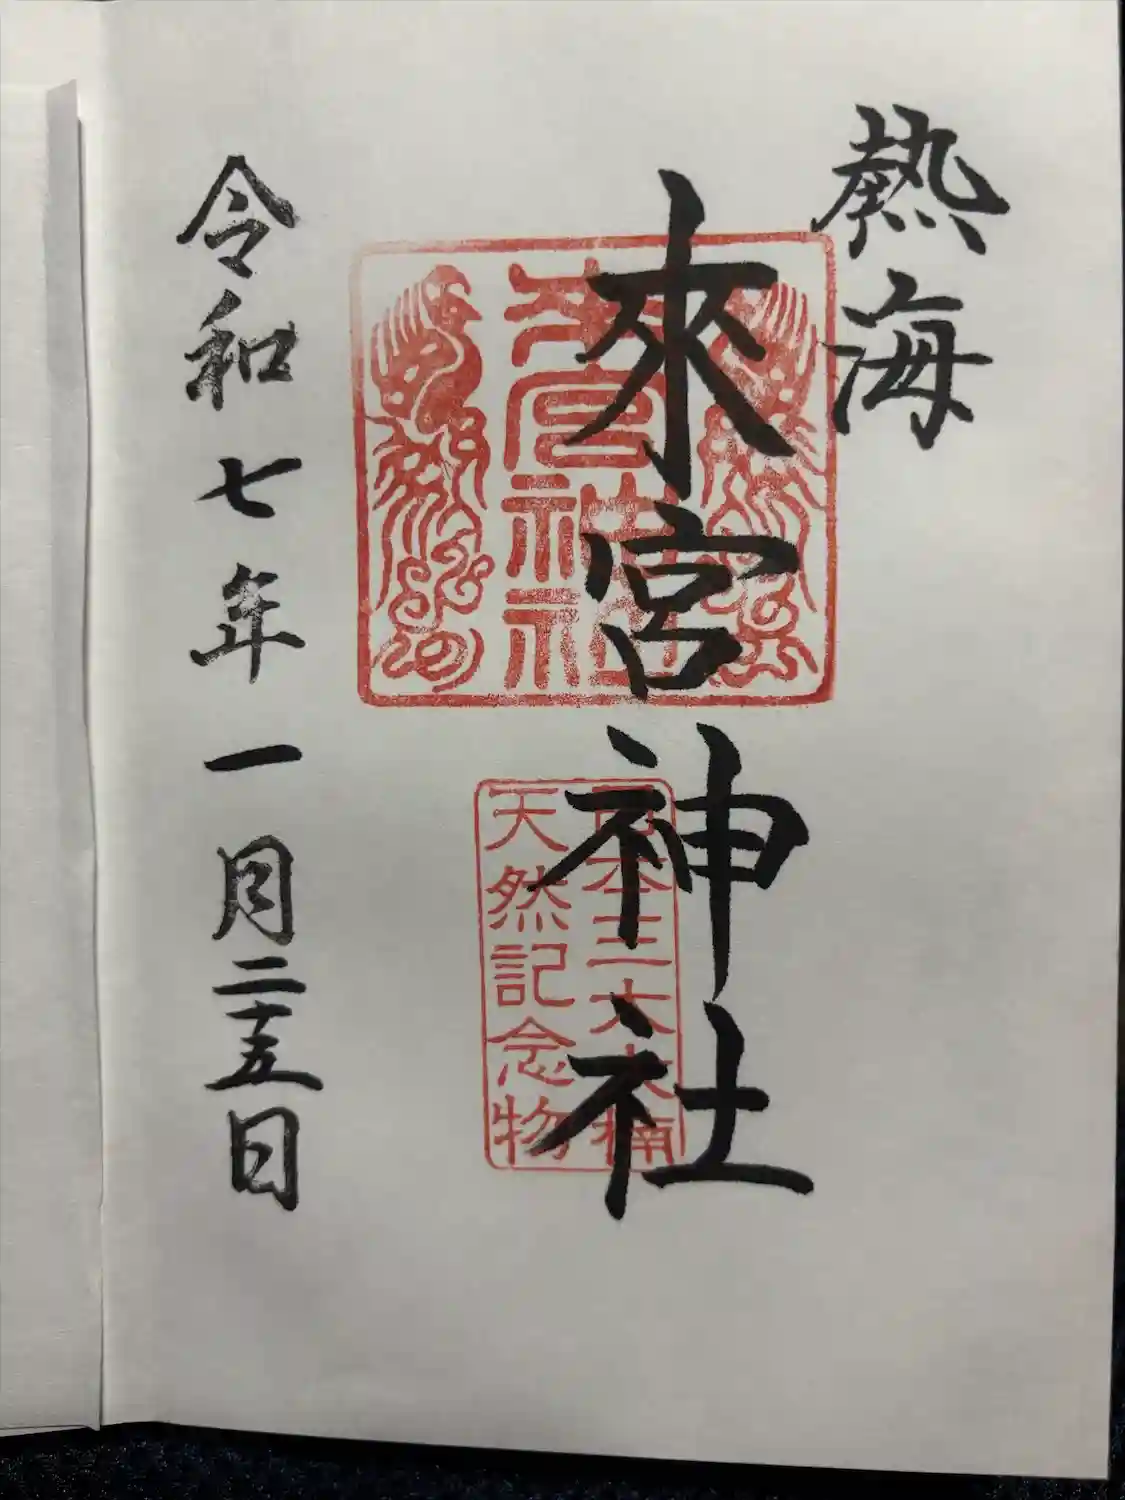 熱海
來宮神社
來宮神社
日本三大大楠
天然記念物
令和七年一月二十五日